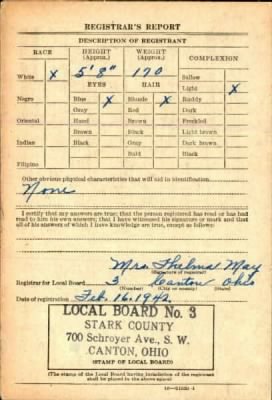 REGISTRAR'S REPORT
DESCRIPTION OF REGISTRANT
RACE HEIGHT (Approx.) WEIGHT (Approx.) COMPLEXION
White X 5' 8" 170 Sallow
EYES HAIR Light X
Negro Blue X Blonde X Ruddy
Gray Red Dark
Oriental Hazel Brown Freckled
Brown Black Light brown
Indian Black Gray Dark brown
Bald Black
Filipino
Other obvious physical characteristics that will aid in identification
None
I certify that my answers are true; that the person registered has read or has had
read to him his own answers; that I have witnessed his signature or mark and that
all of his answers of which I have knowledge are true, except as follows:
Mrs. Thelma May
(Signature of registrar)
Registrar for Local Board 3 Canton Ohio
(Number) (City or county) (State)
Date of registration Feb. 16, 1942
LOCAL BOARD No. 3
STARK COUNTY
700 Schroyer Ave., S. W.
CANTON, OHIO
(STAMP OF LOCAL BOARD)
(The stamp of the Local Board having jurisdiction of the registrant
shall be placed in the above space)